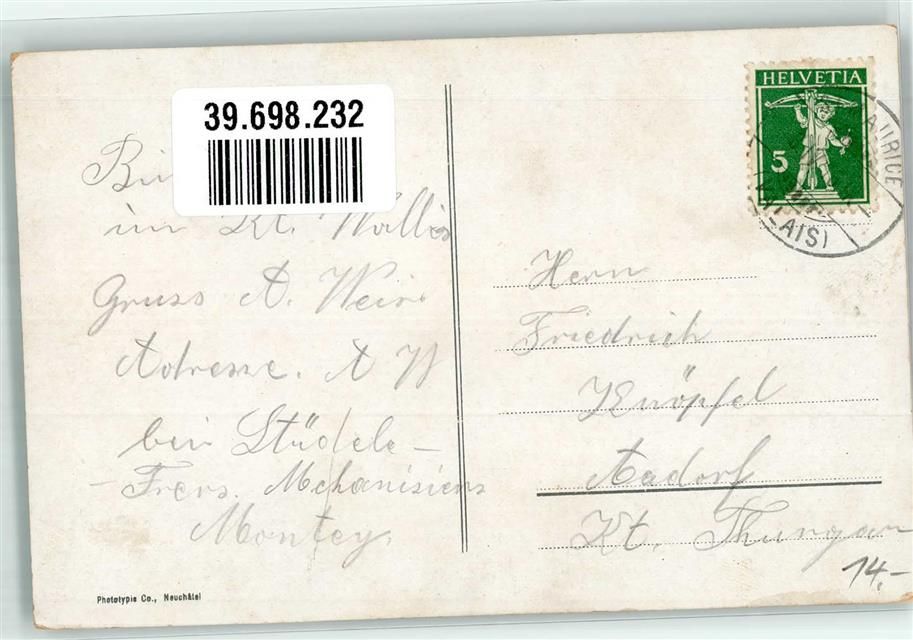 39.698.232
im Kt. Wallis
Gruss A.
Adresse. A W
bei Städele-
- Frers. Mechanisiens
Montey
Phototypie Co., Neuchâtel
HELVETIA
5
AURICE
(VALAIS)
Herrn
Friedrich
Knöpfel
Aadorf
Kt. Thurgau
14.-